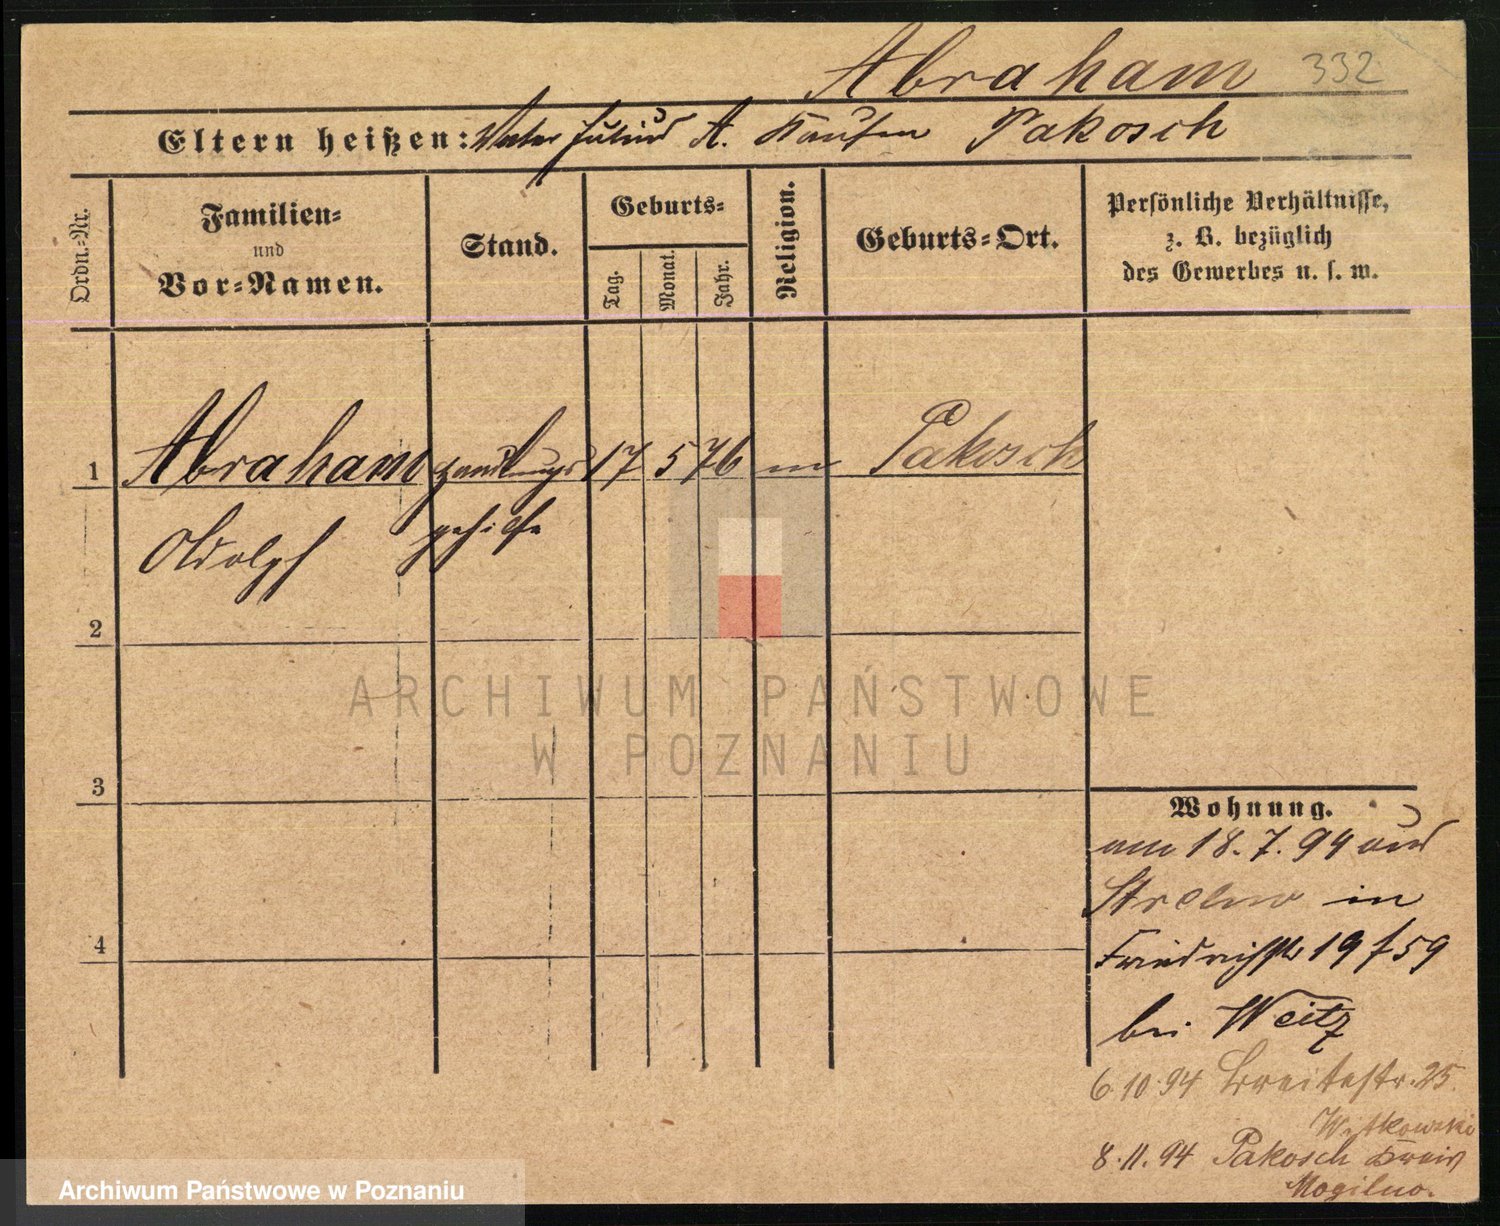 Abraham 332
Eltern heißen: Vater Julius A. Kaufm Pakosch
Ordn.-Nr.
Familien-
und
Vor-Namen.
Stand.
Geburts-
Tag.
Monat.
Jahr.
Religion.
Geburts-Ort.
Persönliche Verhältnisse,
z. B. bezüglich
des Gewerbes u. s. w.
1 Abraham Handlungs 17 5 76 m Pakosch
Adolph gehilfe
2
3
4
Wohnung.
am 18. 7. 94 aus
Strelno in
Friedrichstr 19 f 59
bei Weitz
6.10.94 Breitestr. 25.
Witkowski
8.11.94 Pakosch Kreis
Mogilno.
ARCHIWUM PAŃSTWOWE
W POZNANIU
Archiwum Państwowe w Poznaniu